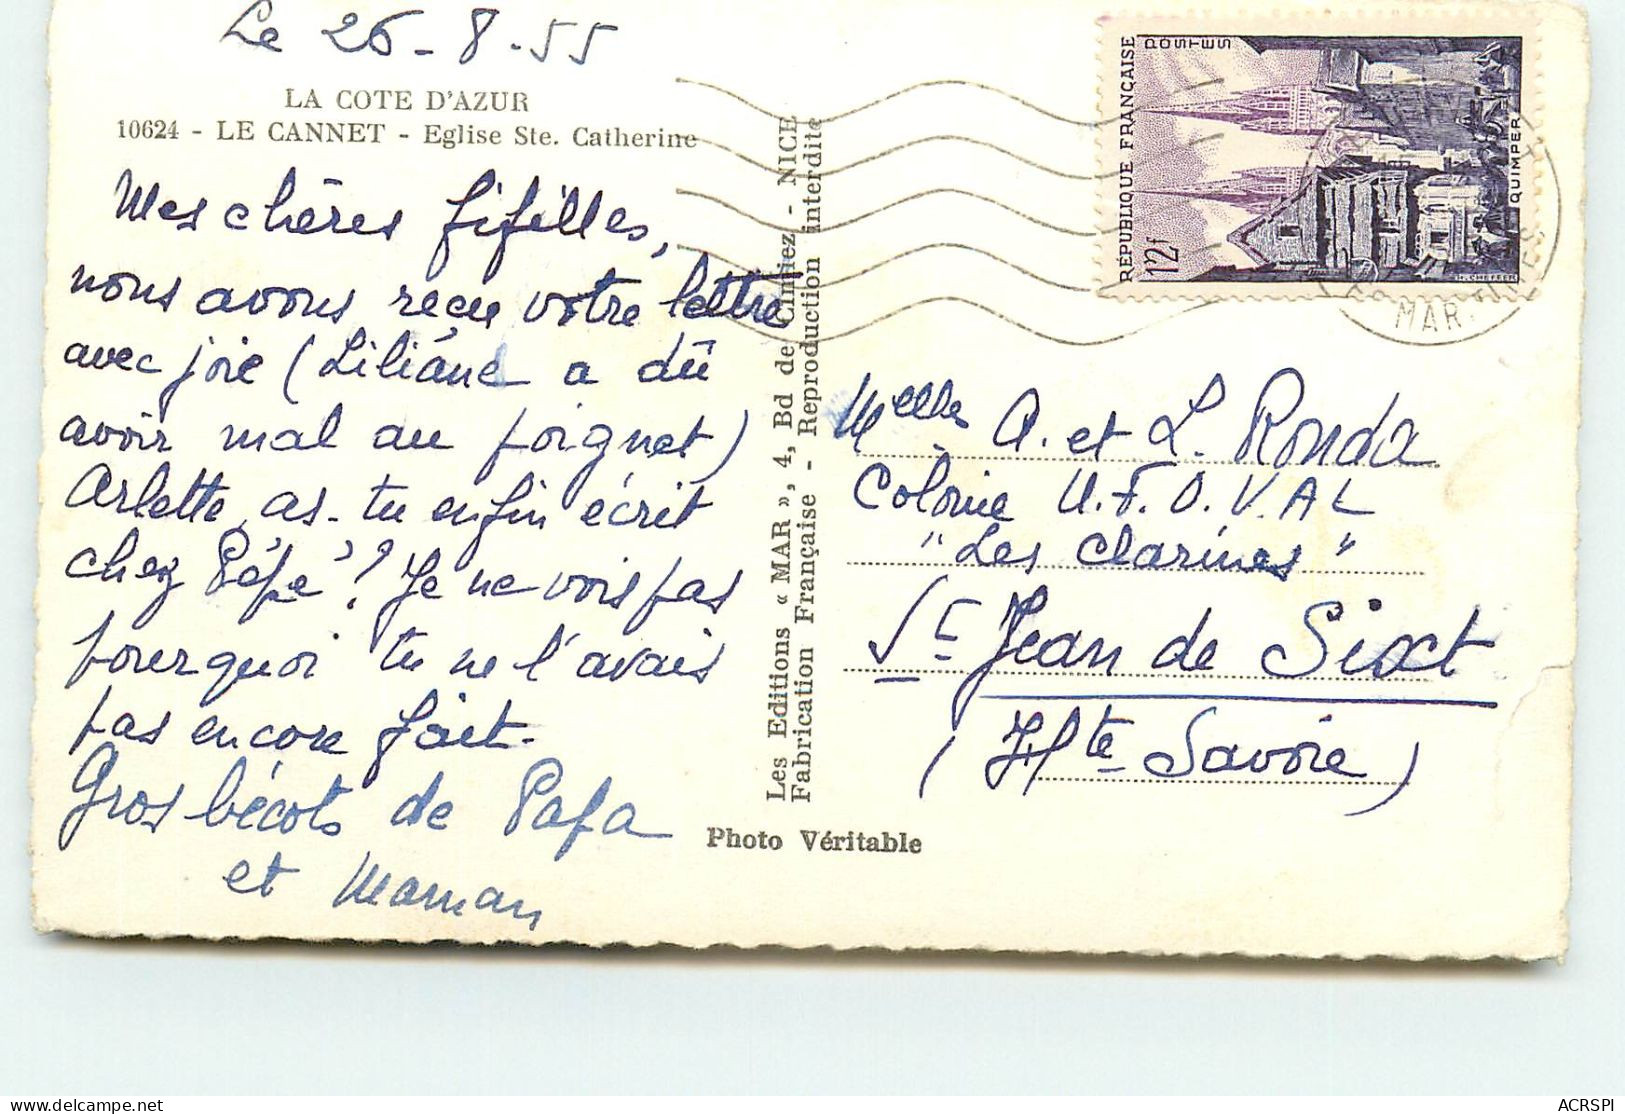 Le 26-8-55
LA COTE D'AZUR
10624 - LE CANNET - Eglise Ste. Catherine
Mes chères fifilles,
nous avons reçu votre lettre
avec joie (Liliane a dû
avoir mal au poignet)
Arlette, as-tu enfin écrit
chez Pépé ? Je ne vois pas
pourquoi tu ne l'avais
pas encore fait.
Gros bécots de Papa
et Maman
Les Editions « MAR », 4, Bd de Cimiez - NICE
Fabrication Française - Reproduction interdite
Photo Véritable
RÉPUBLIQUE FRANÇAISE
POSTES
12f
QUIMPER
Melles A. et L. Ronda
Colonie U.F.O.V.AL
"Les Clarines"
St Jean de Sixt
(Hte Savoie)
ACRSPI